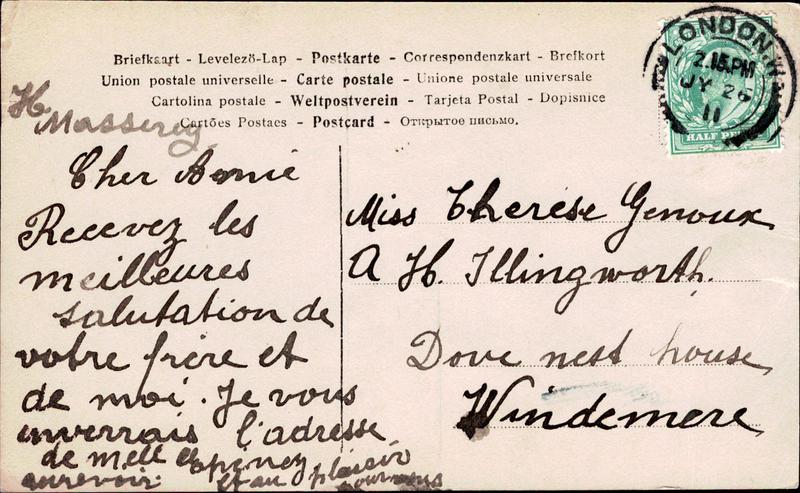 Briefkaart - Levelező-Lap - Postkarte - Correspondenzkart - Brefkort
Union postale universelle - Carte postale - Unione postale universale
Cartolina postale - Weltpostverein - Tarjeta Postal - Dopisnice
Cartões Postaes - Postcard - Открытое письмо.
LONDON.W.
2.15PM
JY 26
11
HALF PENNY
H.
Cher Aemie
Recevez les
meilleures
salutation de
votre frère et
de moi. Je vous
inverrais l'adresse
de Melle
aurevoir. et au plaisir
Miss Therése Genoux
A H. Illingworth.
Dove nest house
Windemere